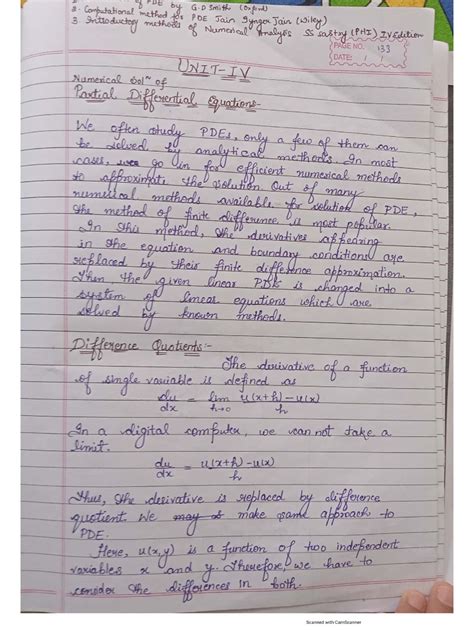 of PDE by G.D Smith (Oxford)
2. Computational method for PDE Jain Iyngar Jain (Wiley)
3. Introductory methods of Numerical Analysis SS sastry (PHI) IV Edition
PAGE NO. 133
DATE:
UNIT-IV
Numerical Solⁿ of
Partial Differential Equations-
We often study PDEs, only a few of them can
be solved by analytical methods. In most
cases, we go in for efficient numerical methods
to approximate the solution. Out of many
numerical methods available for solution of PDE,
the method of finite difference is most popular.
In this method, the derivatives appearing
in the equation and boundary conditions are
replaced by their finite difference approximation.
Then, the given linear PDE is changed into a
system of linear equations which are
solved by known methods.
Difference Quotients:-
The derivative of a function
of single variable is defined as
du/dx = lim h→0 u(x+h)-u(x)/h
In a digital computer, we can not take a
limit.
du/dx = u(x+h)-u(x)/h
Thus, the derivative is replaced by difference
quotient. We may make same approach to
PDE.
Here, u(x,y) is a function of two independent
variables x and y. Therefore, we have to
consider the differences in both.
Scanned with CamScanner